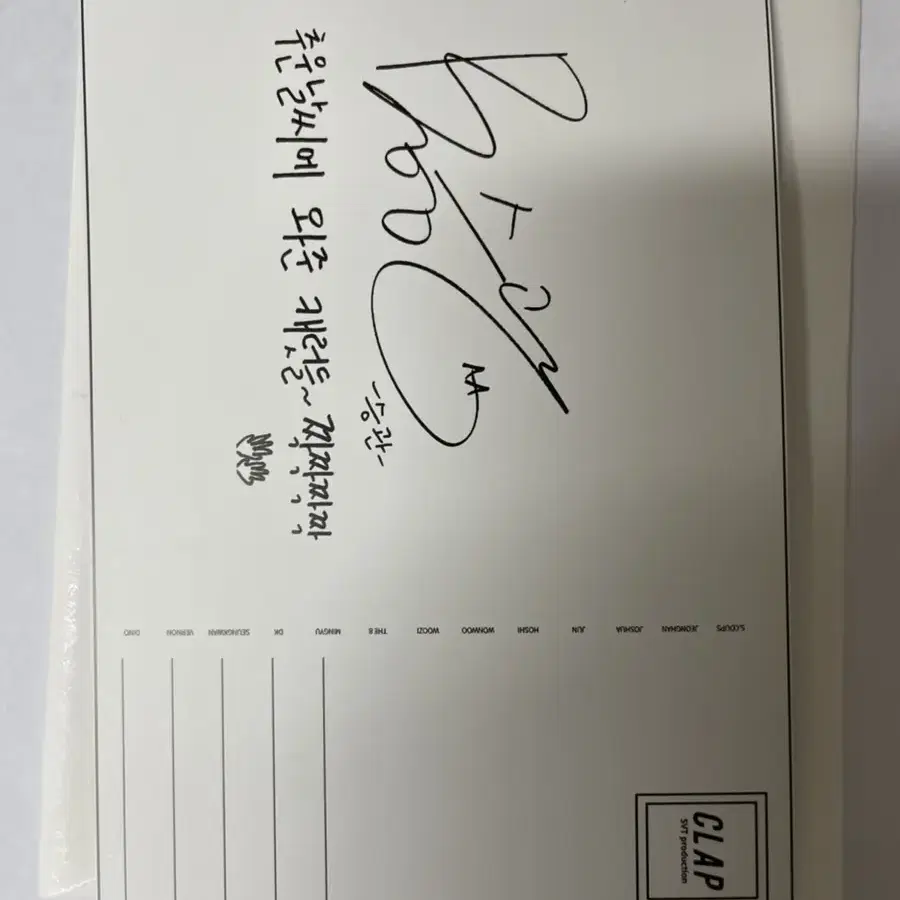 추운날씨에 와준 캐럿들~ 쪽쪽쪽쪽
-승관-
S.COUPS
JEONGHAN
JOSHUA
JUN
HOSHI
WONWOO
WOOZI
THE 8
MINGYU
DK
SEUNGKWAN
VERNON
DINO
CLAP
SVT production